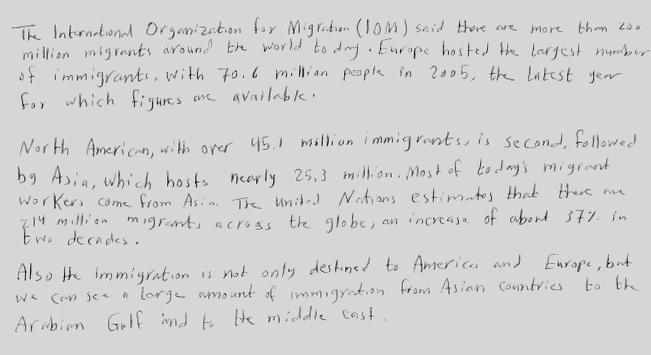 The International Organization for Migration (IOM) said there are more than 200
million migrants around the world today. Europe hosted the largest number
of immigrants, with 70.6 million people in 2005, the latest year
for which figures are available.
North American, with over 45.1 million immigrants, is second, followed
by Asia, which hosts nearly 25,3 million. Most of today's migrant
workers come from Asia. The United Nations estimates that there are
214 million migrants across the globe, an increase of about 37% in
two decades.
Also the immigration is not only destined to America and Europe, but
we can see a large amount of immigration from Asian countries to the
Arabian Gulf and to the middle east.